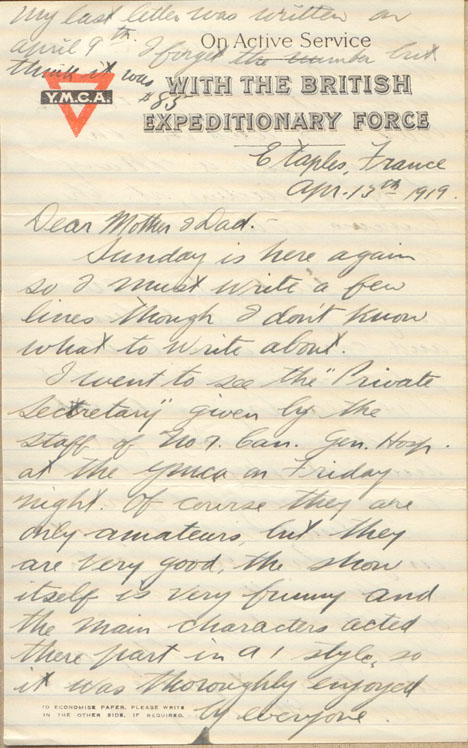 My last letter was written on
april 9th. I forget the number but
think it was
#85
On Active Service
Y.M.C.A.
WITH THE BRITISH
EXPEDITIONARY FORCE
Etaples, France
Apr. 13th 1919.
Dear Mother & Dad.-
Sunday is here again
so I must write a few
lines though I don't know
what to write about.
I went to see the "Private
Secretary" given by the
staff of No 7. Can. Gen. Hosp.
at the YMCA on Friday
night. Of course they are
only amateurs, but they
are very good, the show
itself is very funny and
the main characters acted
there part in a 1 style, so
it was thoroughly enjoyed
by everyone.
TO ECONOMISE PAPER, PLEASE WRITE
IN THE OTHER SIDE, IF REQUIRED.